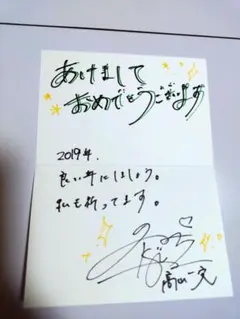 あけまして
おめでとうございます
2019年.
良い年にしましょう。
私も祈ってます。
高山一実